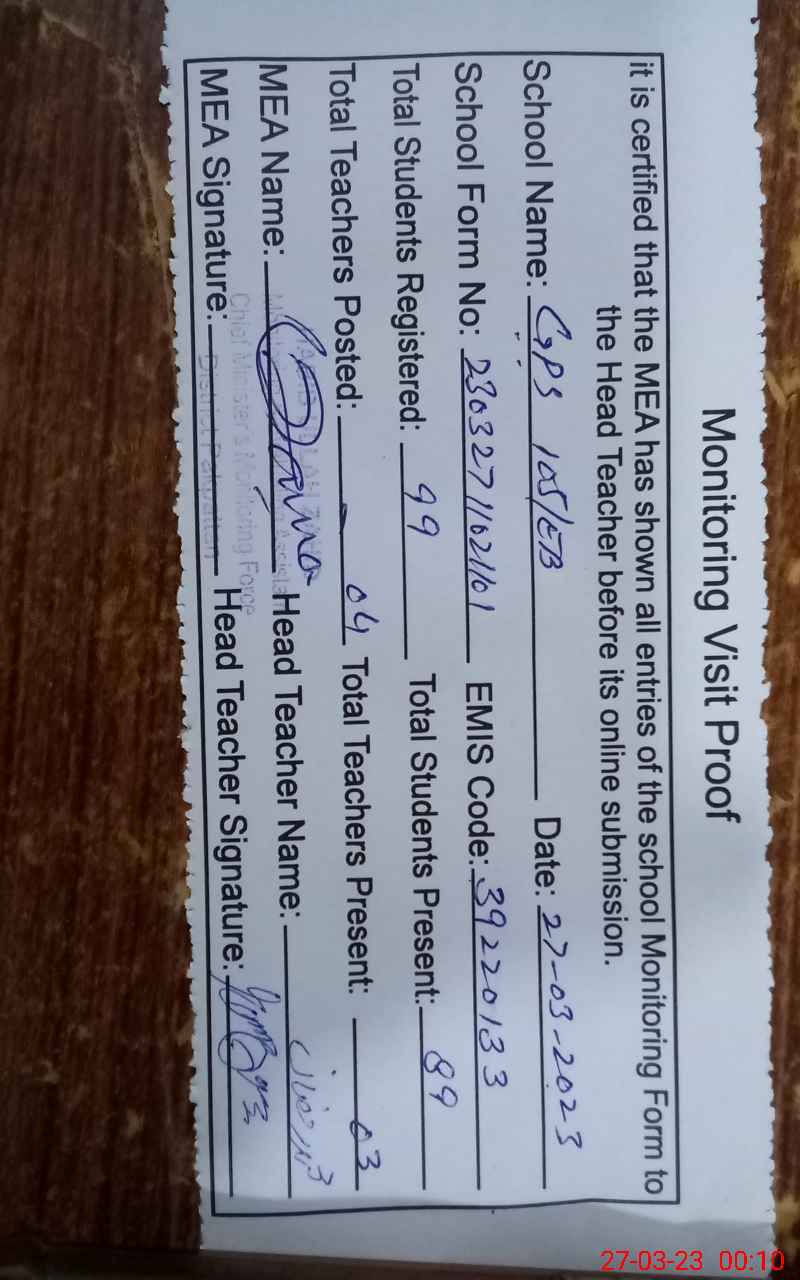 Monitoring Visit Proof
it is certified that the MEA has shown all entries of the school Monitoring Form to
the Head Teacher before its online submission.
School Name: GPS 105/EB Date: 27-03-2023
School Form No: 23032711021101 EMIS Code: 39220133
Total Students Registered: 99 Total Students Present: 89
Total Teachers Posted: 04 Total Teachers Present: 03
MEA Name: Head Teacher Name:
Chief Minister's Monitoring Force
MEA Signature: Head Teacher Signature:
District Pakpattan
27-03-23 00:10